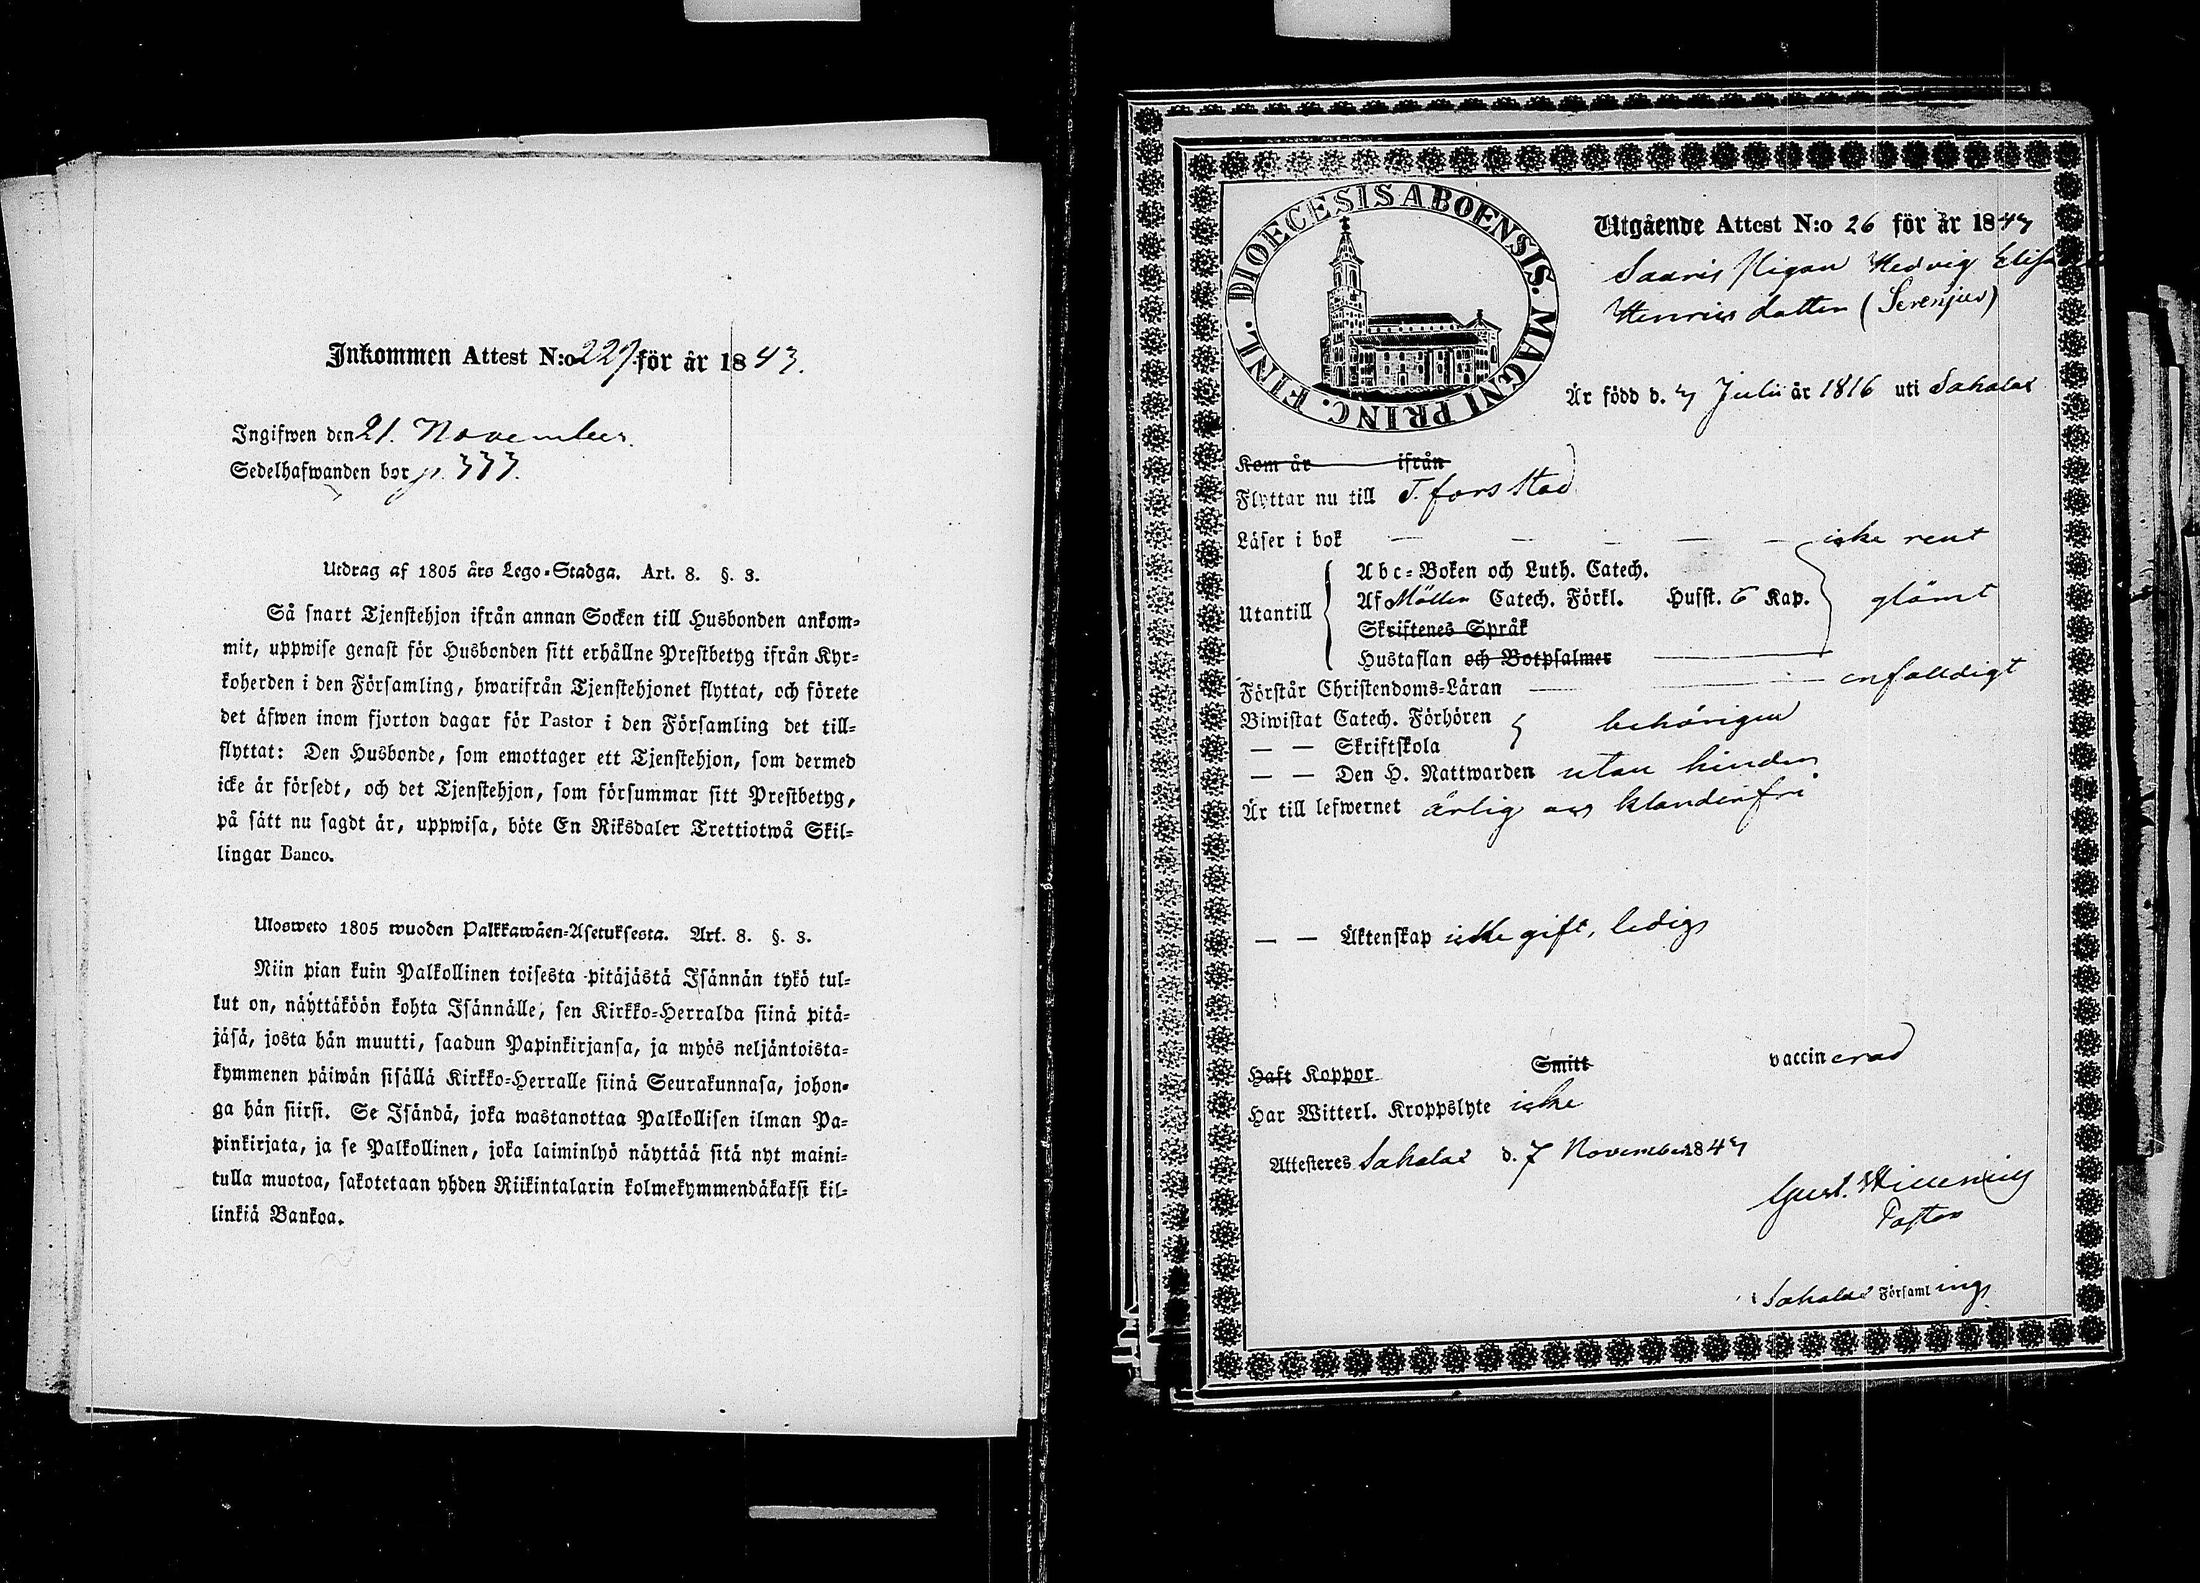 Inkommen Attest N:o 227 för år 1843.
Ingifwen den 21. November.
Sedelhafwanden bor p. 333.
Utdrag af 1805 års Lego-Stadga. Art. 8. §. 3.
Så snart Tjenstehjon ifrån annan Socken till Husbonden ankom-
mit, uppwise genast för Husbonden sitt erhållne Prestbetyg ifrån Kyr-
koherden i den Församling, hwarifrån Tjenstehjonet flyttat, och förete
det äfwen inom fjorton dagar för Pastor i den Församling det till-
flyttat: Den Husbonde, som emottager ett Tjenstehjon, som dermed
icke är försedt, och det Tjenstehjon, som försummar sitt Prestbetyg,
på sätt nu sagdt är, uppwisa, böte En Riksdaler Trettiotwå Skil-
lingar Banco.
Ulosweto 1805 wuoden Palkkawäen-Asetuksesta. Art. 8. §. 3.
Niin pian kuin Palkollinen toisesta pitäjästä Isännän tykö tul-
lut on, näyttäköön kohta Isännälle, sen Kirkko-Herralda siinä pitä-
jäsä, josta hän muutti, saadun Papinkirjansa, ja myös neljäntoista-
kymmenen päiwän sisällä Kirkko-Herralle siinä Seurakunnasa, johon-
ga hän siirsi. Se Isändä, joka wastanottaa Palkollisen ilman Pa-
pinkirjata, ja se Palkollinen, joka laiminlyö näyttää sitä nyt maini-
tulla muotoa, sakotetaan yhden Riikintalarin kolmekymmendäkaksi kil-
linkiä Bankoa.
DIOECESIS ABOENSIS. MAGNI PRINC. FINL.
Utgående Attest N:o 26 för år 1843
Saaris Pigan Hedvig Elisa
Henricsdotter
Är född d. 3 Julii år 1816 uti Sahalax
Kom år ifrån
Flyttar nu till T.fors Stad
Läser i bok icke rent
Abc-Boken och Luth. Catech.
Utantill Af Möller Catech. Förkl. Husst. 6 Kap. glömt
Skriftenes Språk
Hustaflan och Botpsalmer
Förstår Christendoms-Läran enfalldigt
Biwistat Catech. Förhören behörigen
— — Skriftskola
— — Den H. Nattwarden utan hinder
Är till lefwernet ärlig och klanderfri
— — Äktenskap icke gift, ledig
Haft Koppor Smitt vaccinerad
Har Witterl. Kroppslyte icke
Attesteres Sahalax d. 7 November 1843
Gust.
Pastor
i Sahalax Församling